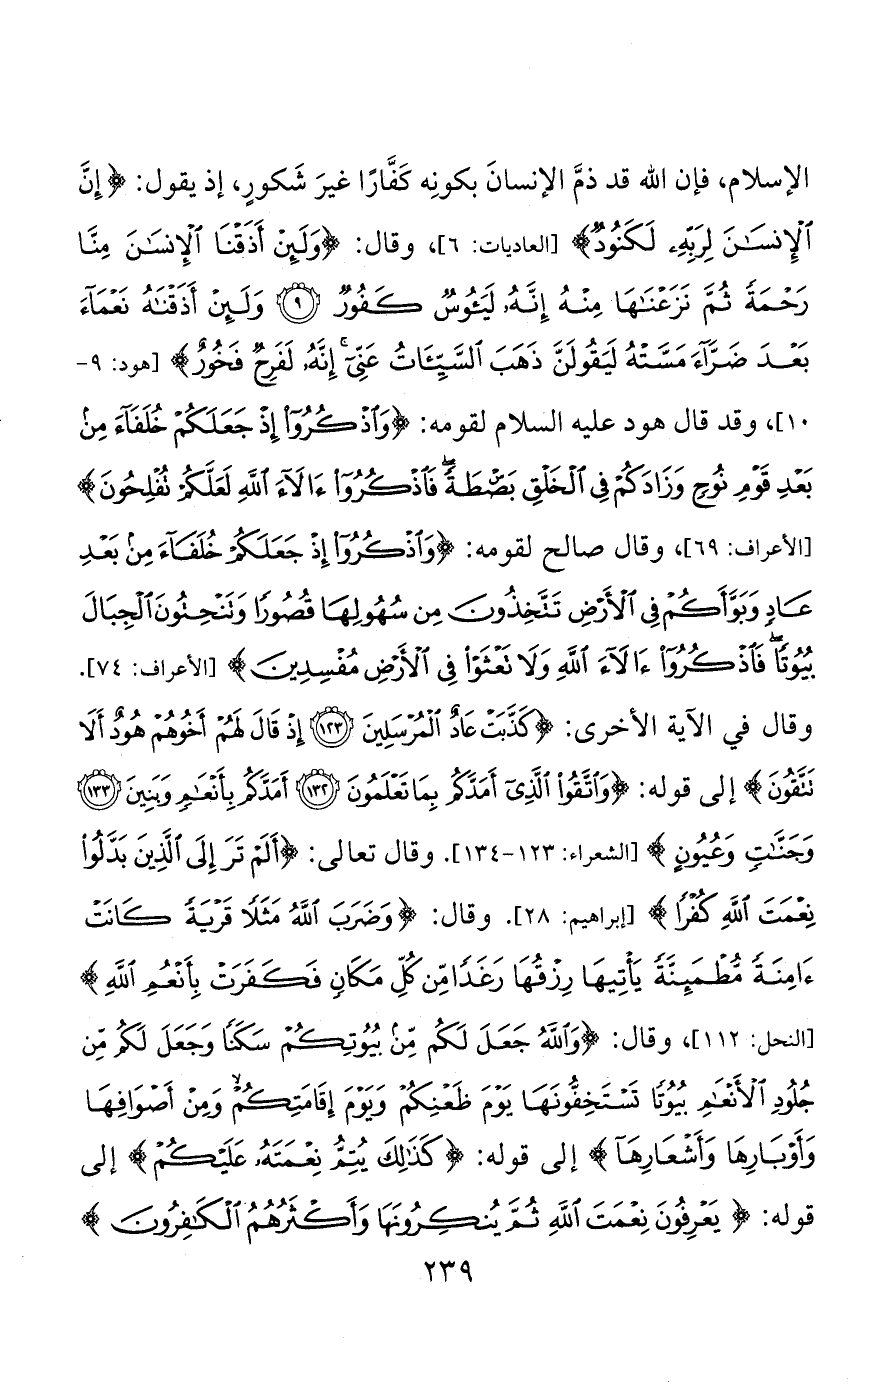 الإسلام، فإن الله قد ذمَّ الإنسانَ بكونِه كَفَّارًا غيرَ شَكورٍ، إذ يقول: ﴿إِنَّ
ٱلْإِنسَٰنَ لِرَبِّهِۦ لَكَنُودٌ﴾ [العاديات: ٦]، وقال: ﴿وَلَئِنْ أَذَقْنَا ٱلْإِنسَٰنَ مِنَّا
رَحْمَةً ثُمَّ نَزَعْنَٰهَا مِنْهُ إِنَّهُۥ لَيَـُٔوسٌ كَفُورٌ ٩ وَلَئِنْ أَذَقْنَٰهُ نَعْمَآءَ
بَعْدَ ضَرَّآءَ مَسَّتْهُ لَيَقُولَنَّ ذَهَبَ ٱلسَّيِّـَٔاتُ عَنِّىٓ ۚ إِنَّهُۥ لَفَرِحٌ فَخُورٌ﴾ [هود: ٩-
١٠]، وقد قال هود عليه السلام لقومه: ﴿وَٱذْكُرُوٓا۟ إِذْ جَعَلَكُمْ خُلَفَآءَ مِنۢ
بَعْدِ قَوْمِ نُوحٍ وَزَادَكُمْ فِى ٱلْخَلْقِ بَصْۜطَةً ۖ فَٱذْكُرُوٓا۟ ءَالَآءَ ٱللَّهِ لَعَلَّكُمْ تُفْلِحُونَ﴾
[الأعراف: ٦٩]، وقال صالح لقومه: ﴿وَٱذْكُرُوٓا۟ إِذْ جَعَلَكُمْ خُلَفَآءَ مِنۢ بَعْدِ
عَادٍ وَبَوَّأَكُمْ فِى ٱلْأَرْضِ تَتَّخِذُونَ مِن سُهُولِهَا قُصُورًا وَتَنْحِتُونَ ٱلْجِبَالَ
بُيُوتًا ۖ فَٱذْكُرُوٓا۟ ءَالَآءَ ٱللَّهِ وَلَا تَعْثَوْا۟ فِى ٱلْأَرْضِ مُفْسِدِينَ﴾ [الأعراف: ٧٤].
وقال في الآية الأخرى: ﴿كَذَّبَتْ عَادٌ ٱلْمُرْسَلِينَ ١٢٣ إِذْ قَالَ لَهُمْ أَخُوهُمْ هُودٌ أَلَا
تَتَّقُونَ﴾ إلى قوله: ﴿وَٱتَّقُوا۟ ٱلَّذِىٓ أَمَدَّكُم بِمَا تَعْلَمُونَ ١٣٢ أَمَدَّكُم بِأَنْعَٰمٍ وَبَنِينَ ١٣٣
وَجَنَّٰتٍ وَعُيُونٍ﴾ [الشعراء: ١٢٣-١٣٤]. وقال تعالى: ﴿أَلَمْ تَرَ إِلَى ٱلَّذِينَ بَدَّلُوا۟
نِعْمَتَ ٱللَّهِ كُفْرًا﴾ [إبراهيم: ٢٨]. وقال: ﴿وَضَرَبَ ٱللَّهُ مَثَلًا قَرْيَةً كَانَتْ
ءَامِنَةً مُّطْمَئِنَّةً يَأْتِيهَا رِزْقُهَا رَغَدًا مِّن كُلِّ مَكَانٍ فَكَفَرَتْ بِأَنْعُمِ ٱللَّهِ﴾
[النحل: ١١٢]، وقال: ﴿وَٱللَّهُ جَعَلَ لَكُم مِّنۢ بُيُوتِكُمْ سَكَنًا وَجَعَلَ لَكُم مِّن
جُلُودِ ٱلْأَنْعَٰمِ بُيُوتًا تَسْتَخِفُّونَهَا يَوْمَ ظَعْنِكُمْ وَيَوْمَ إِقَامَتِكُمْ ۙ وَمِنْ أَصْوَافِهَا
وَأَوْبَارِهَا وَأَشْعَارِهَآ﴾ إلى قوله: ﴿كَذَٰلِكَ يُتِمُّ نِعْمَتَهُۥ عَلَيْكُمْ﴾ إلى
قوله: ﴿يَعْرِفُونَ نِعْمَتَ ٱللَّهِ ثُمَّ يُنكِرُونَهَا وَأَكْثَرُهُمُ ٱلْكَٰفِرُونَ﴾
٢٣٩